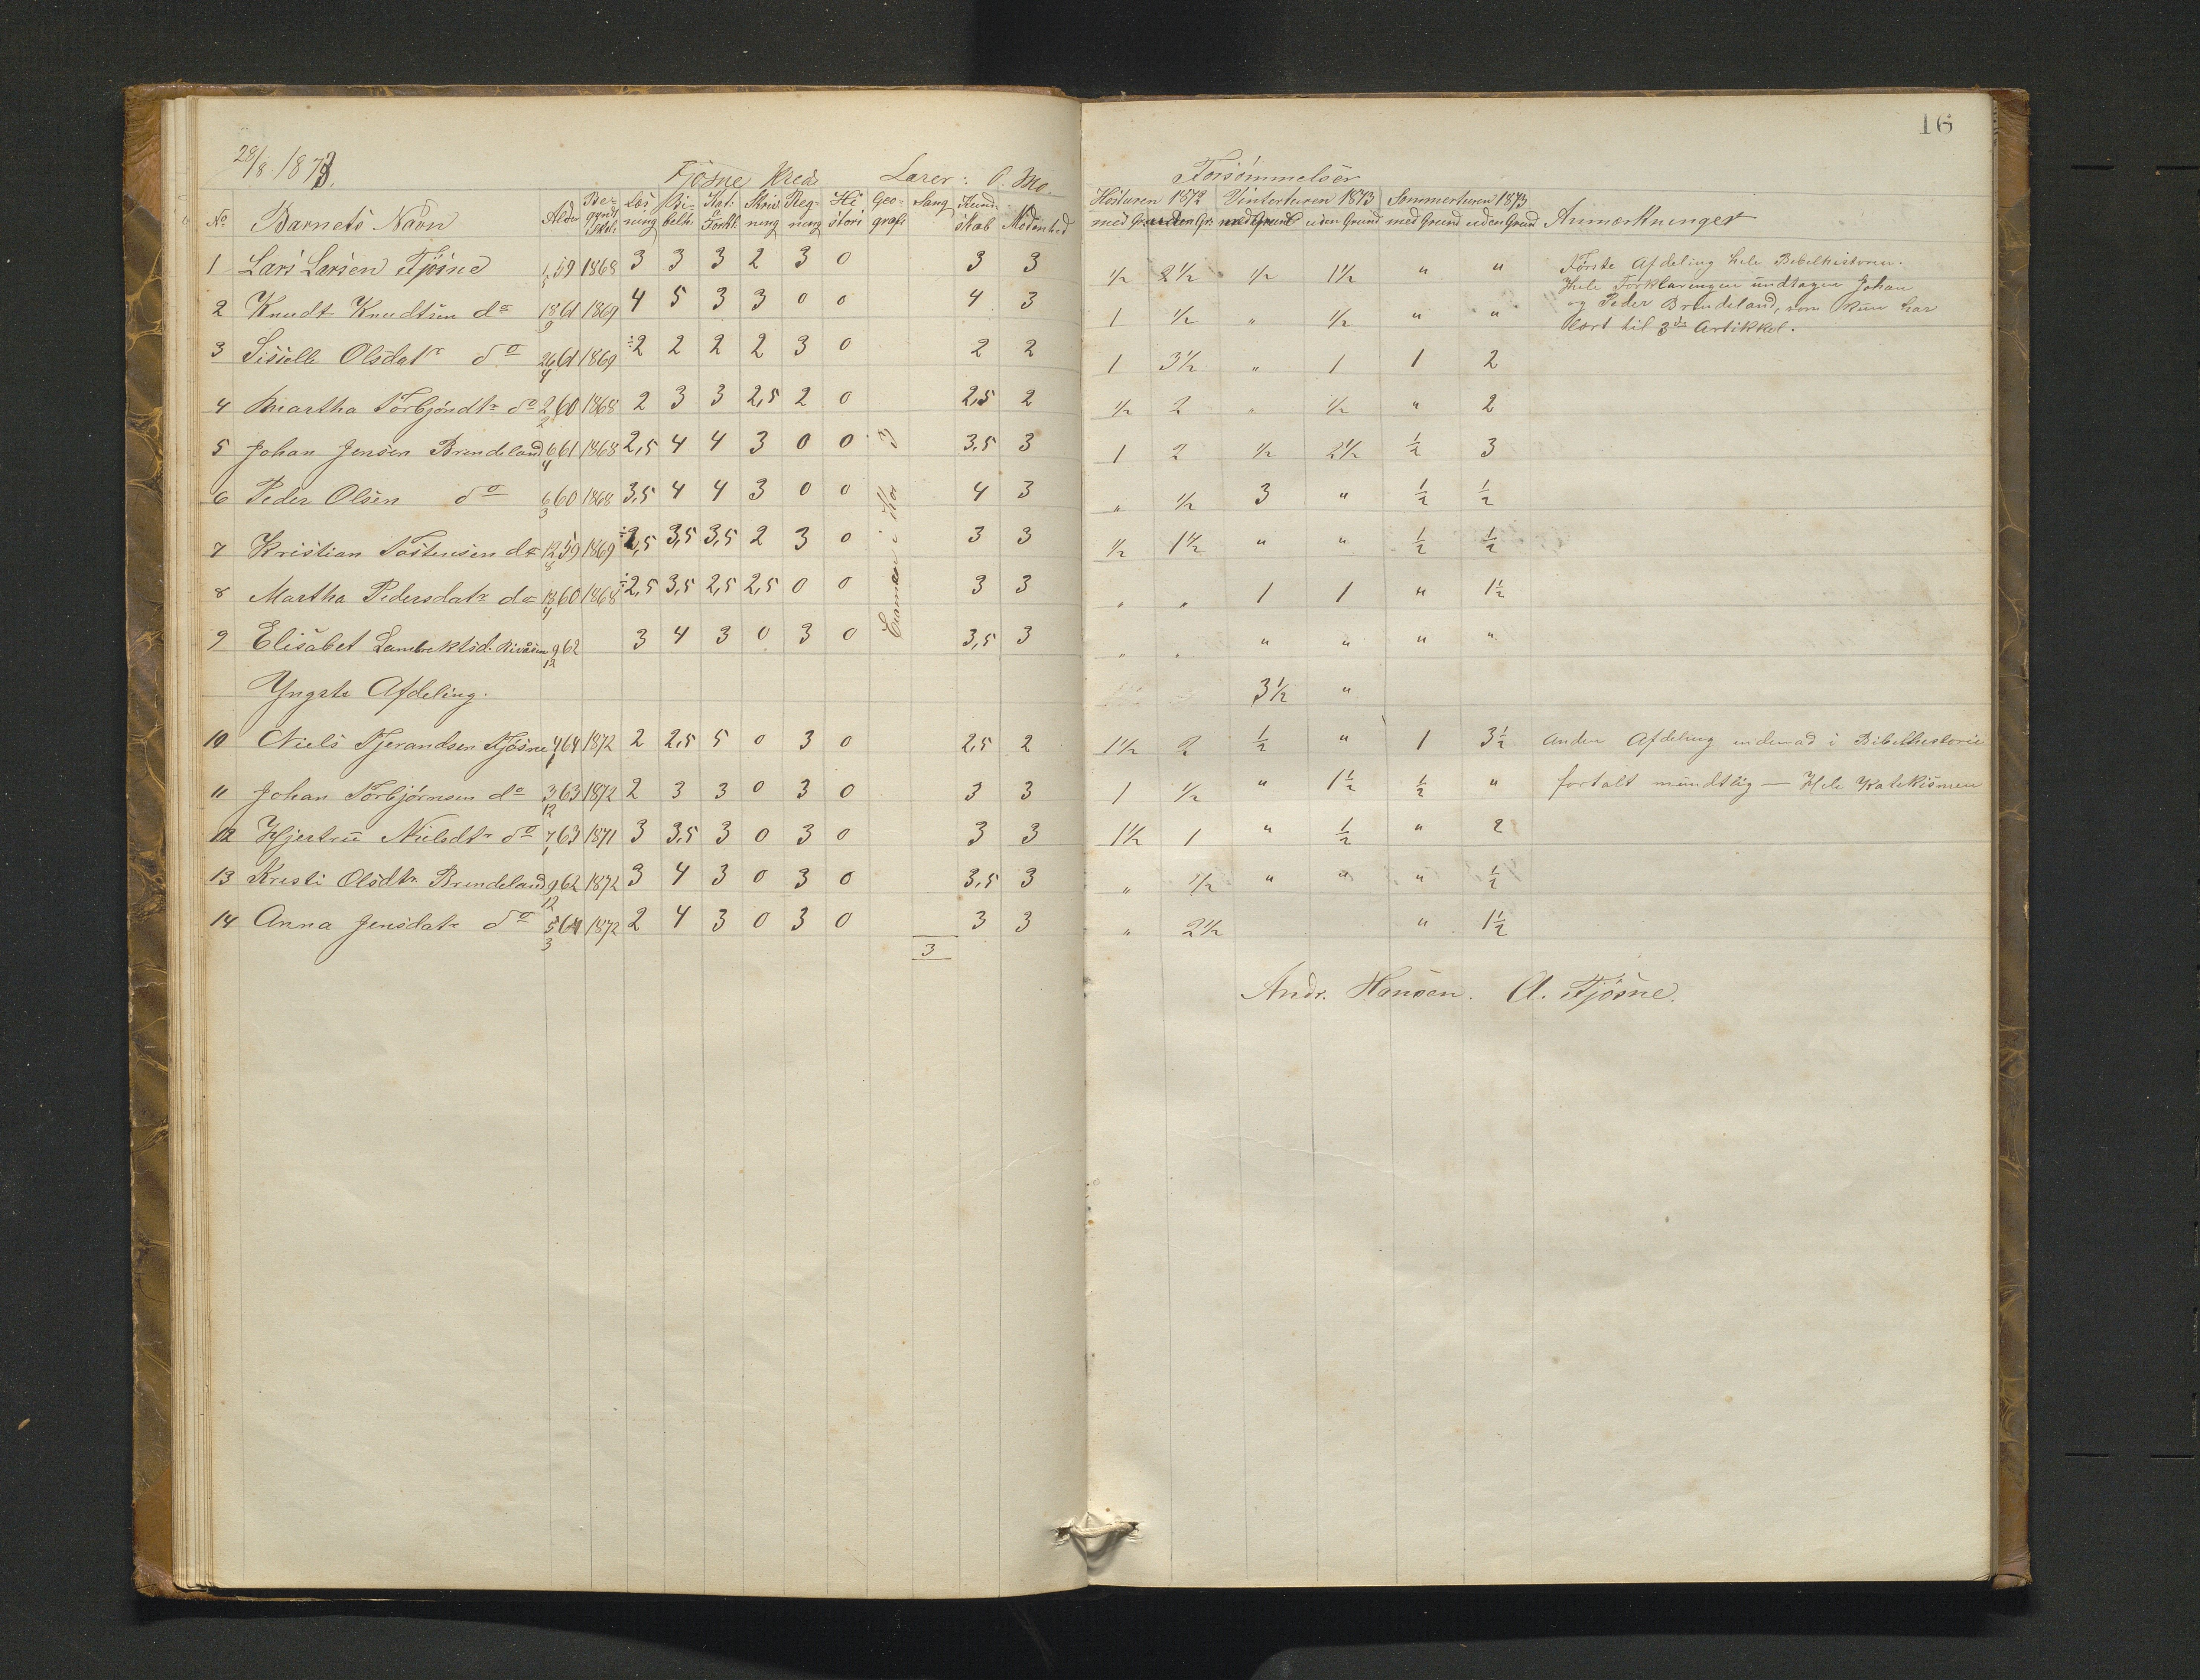 16
28/8 1873.
Fjøsne Kreds Lærer: O. Mo.
Forsømmelser
Høsturen 1872 Vinterturen 1873 Sommerturen 1873
No Barnets Navn Alder Begyndt Skol: Læsning Bibelh. Kat: & Forkl: Skrivning Regning Histori Geografi Sang Kundskab Modenhed med Gr. uden Gr. med Grund uden Grund med Grund uden Grund Anmærkninger
1 Lars Larsen Fjøsne 1/5 59 1868 3 3 3 2 3 0 3 3 1/2 2 1/2 1/2 1 1/2 " " Første Afdeling hele Bibelhistorien.
Hele Forklaringen undtagen Johan
2 Knudt Knudtsen do 18/9 61 1869 4 5 3 3 0 0 4 3 1 1/2 " 1/2 " " og Peder Brendeland, som kun har
lært til 3die Artikkel.
3 Sissella Olsdatr do 26/4 61 1869 ÷2 2 2 2 3 0 2 2 1 3 1/2 " 1 1 2
4 Martha Torbjøndtr do 2/2 60 1868 2 3 3 2,5 2 0 2,5 2 1/2 2 " 1/2 " 2
5 Johan Jensen Brendeland 6/4 61 1868 2,5 4 4 3 0 0 3,5 3 1 2 1/2 2 1/2 1/2 3
6 Peder Olsen do 6/3 60 1868 3,5 4 4 3 0 0 4 3 " 1/2 3 " 1/2 1/2
7 Kristian Tostensen do 12/8 59 1869 ÷2,5 3,5 3,5 2 3 0 3 3 1/2 1 1/2 " " 1/2 1/2
8 Martha Pedersdatr do 18/4 60 1868 ÷2,5 3,5 2,5 2,5 0 0 3 3 " " 1 1 " 1 1/2
9 Elisabet Lambrektsd. 9/12 62 3 4 3 0 3 0 3,5 3 " " " " " "
i Kor 3
Yngste Afdeling. 3 1/2 "
10 Niels Tjerandsen Fjøsne 4/1 64 1872 2 2,5 5 0 3 0 2,5 2 1 1/2 2 1/2 " 1 3 1/2 Anden Afdeling indenad i Bibelhistorie
11 Johan Torbjørnsen do 3/12 63 1872 2 3 3 0 3 0 3 3 1 1/2 " 1 1/2 1/2 " fortalt mundtlig — Hele Katekismen
12 Hjertru Nielsdtr do 7/1 63 1871 3 3,5 3 0 3 0 3 3 1 1/2 1 " 1/2 " 2
13 Kresti Olsdtr Brendeland 9/12 62 1872 3 4 3 0 3 0 3,5 3 " 1/2 " " " 1/2
14 Anna Jensdatr do 5/3 64 1872 2 4 3 0 3 0 3 3 " 2 1/2 " 1 1/2
3
Andr. Hansen. A. Fjøsne.